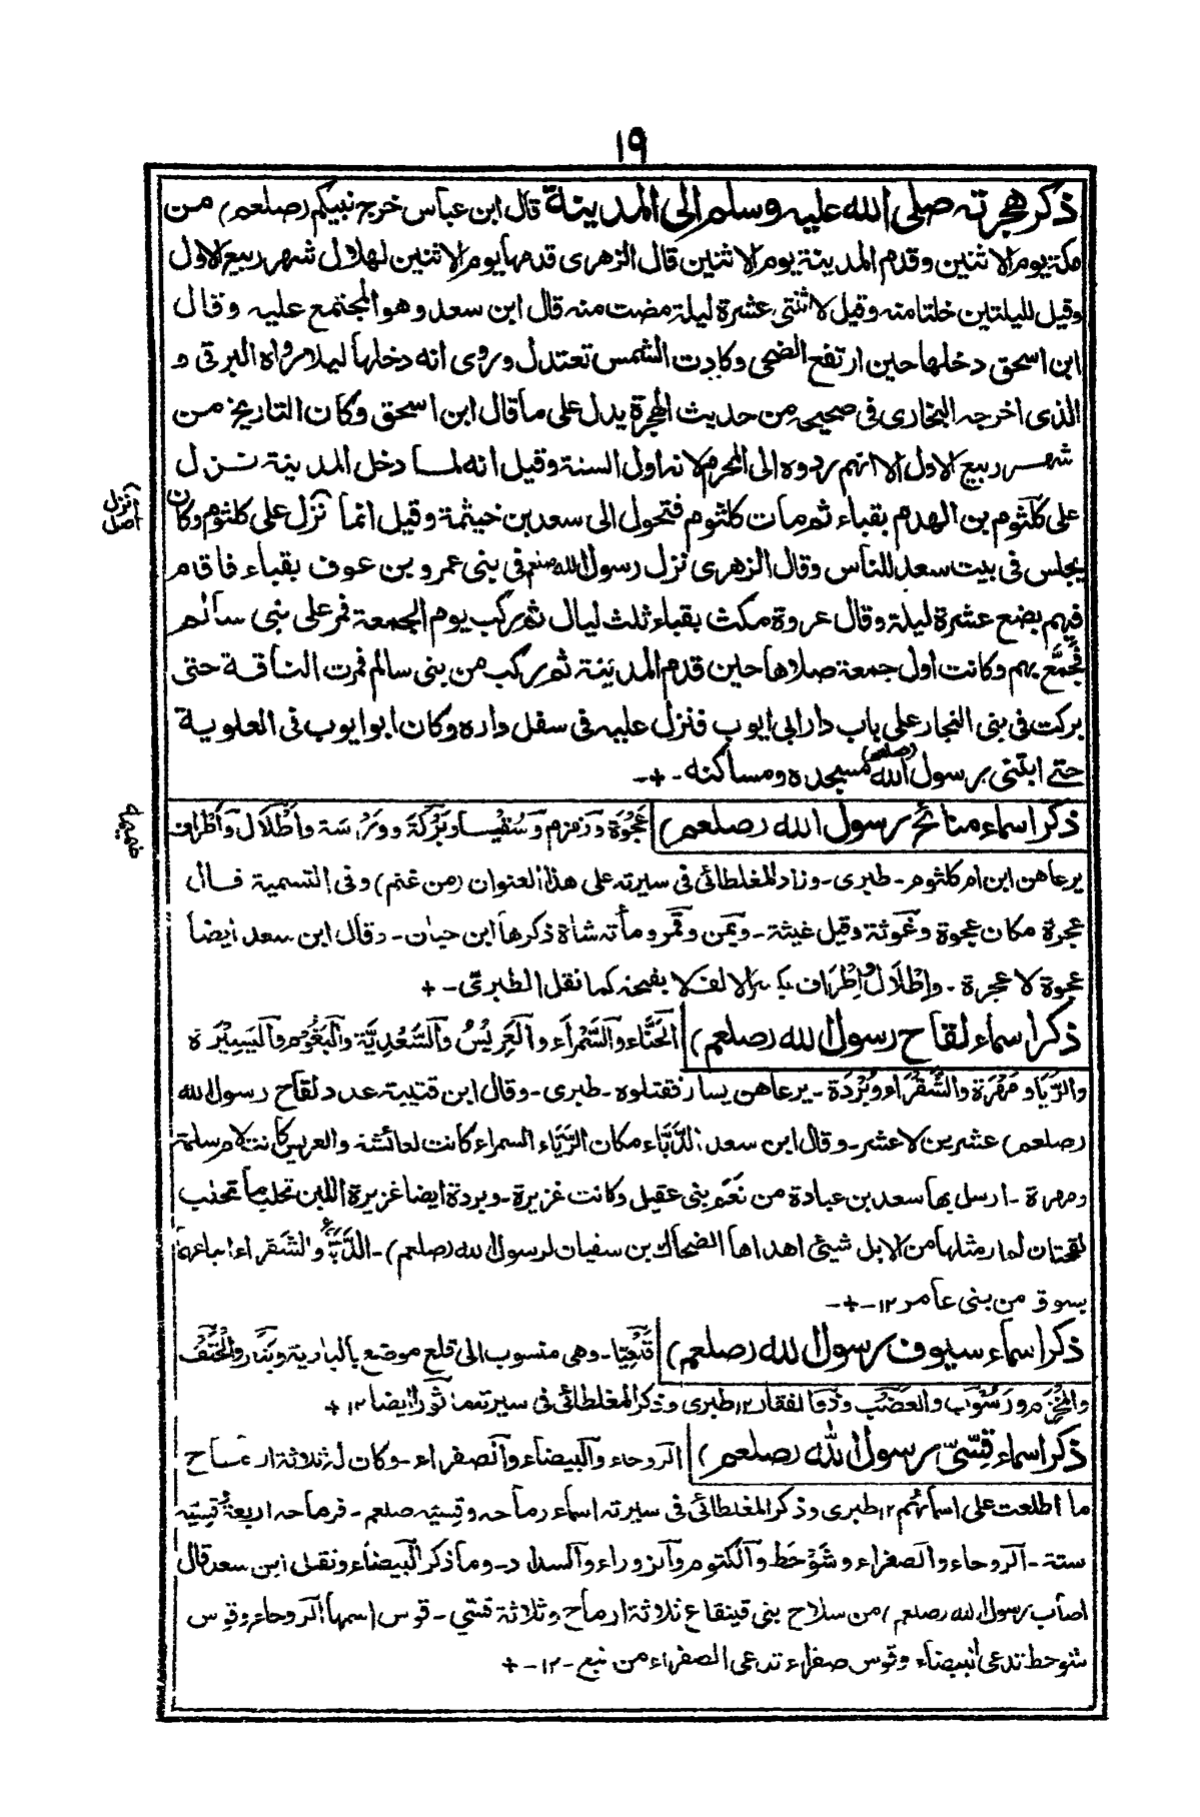 ١٩
ذكر هجرته صلى الله عليه وسلم الى المدينة قال ابن عباس خرج نبيكم (صلعم) من
مكة يوم الاثنين وقدم المدينة يوم الاثنين قال الزهرى قدمها يوم الاثنين لهلال شهر ربيع الاول
وقيل لليلتين خلتا منه وقيل لاثنتى عشرة ليلة مضت منه قال ابن سعد وهو المجتمع عليه وقال
ابن اسحق دخلها حين ارتفع الضحى وكادت الشمس تعتدل وروى انه دخلها ليلا رواه البرقى و
الذى اخرجه البخارى فى صحيحه من حديث الهجرة يدل على ما قال ابن اسحق وكان التاريخ من
شهر ربيع الاول الا انهم ردوه الى المحرم لانه اول السنة وقيل انه لما دخل المدينة نزل
على كلثوم بن الهدم بقباء ثم مات كلثوم فتحول الى سعد بن خيثمة وقيل انما نزل على كلثوم وكان
أنزل اصل
يجلس فى بيت سعد للناس وقال الزهرى نزل رسول الله صلعم فى بنى عمرو بن عوف بقباء فاقام
فيهم بضع عشرة ليلة وقال عروة مكث بقباء ثلث ليال ثم ركب يوم الجمعة فمر على بنى سالم
فجمّع بهم وكانت اول جمعة صلاها حين قدم المدينة ثم ركب من بنى سالم فمرت الناقة حتى
بركت فى بنى النجار على باب دار ابى ايوب فنزل عليه فى سفل داره وكان ابو ايوب فى العلوية
حتے ابتنى رسول الله (صلعم) مسجده ومساكنه -+-
ضميمه
ذكر اسماء منائح رسول الله (صلعم) عَجْوَة وزمزم وسُقْيا وبَرَكَة وورسة واَطْلَال واَطْراف
يرعاهن ابن ام كلثوم - طبرى - وزاد المغلطائى فى سيرته على هذا العنوان (من غنم) وفى التسمية قال
عجرة مكان عجوة وغَوثة وقيل غيثة - ويَمن وقَمَر ومأته شاة ذكرها ابن حبان - وقال ابن سعد ايضا
عجوة لا عجرة - واِطْلَال واِطْرَاف بكسر الالف لا بفتحه كما نقل الطبرىّ - +
ذكر اسماء لقاح رسول الله (صلعم) اَلحَنَّاء والسَّمْرَاء والعَرِيْسُ والسَّعْدِيَّة والبَغُوْم واليَسِيْرَة
والرَّيَّا ومَهْرَة والشَّقْرَاء وبُرْدَة - يرعاهن يسار فقتلوه - طبرى - وقال ابن قتيبة عدد لقاح رسول الله
(صلعم) عشرين لا عشر - وقال ابن سعد: الدَّبَّاء مكان الرَّيَّاء السمراء كانت لعائشة والعريس كانت لام سلمة
ومهرة - ارسل بها سعد بن عبادة من نَعَم بنى عقيل وكانت غزيرة - وبردة ايضا غزيرة اللبن تحلب ما تحلب
لقحتان لها مثلها من الابل شيئ اهداها الضحاك بن سفيان لرسول الله (صلعم) - الدَّبَّاء والشَّقراء ابتاعهما
بسوق من بنى عامر ١٢ -+-
ذكر اسماء سيوف رسول الله (صلعم) قَلْعِيًّا - وهى منسوب الى قلع موضع بالبادية وبَتَّار والحَتْف
والمِخْذَم ورَسُوْب والعَضْب وذو الفقار ١٢ طبرى وذكر المغلطائى فى سيرته ماثورا ايضا ١٢ +
ذكر اسماء قِسِّىّ رسول الله (صلعم) الروحاء والبيضاء والصفراء - وكان له ثلاثة ارماح
ما اطلعت على اسمائهم ١٢ طبرى وذكر المغلطائى فى سيرته اسماء رماحه وقِسِيّه صلعم - فرماحه اربعة وقِسِيّه
ستة - الروحاء والصفراء وشَوْحَط والكتوم والزوراء والسداد - وما ذكر البيضاء ونقل ابن سعد قال
اصاب رسول الله (صلعم) من سلاح بنى قينقاع ثلاثة ارماح وثلاثة قسّي - قوس اسمها الروحاء وقوس
شوحط تدعى البيضاء وقوس صفراء تدعى الصفراء من نبع - ١٢ - +